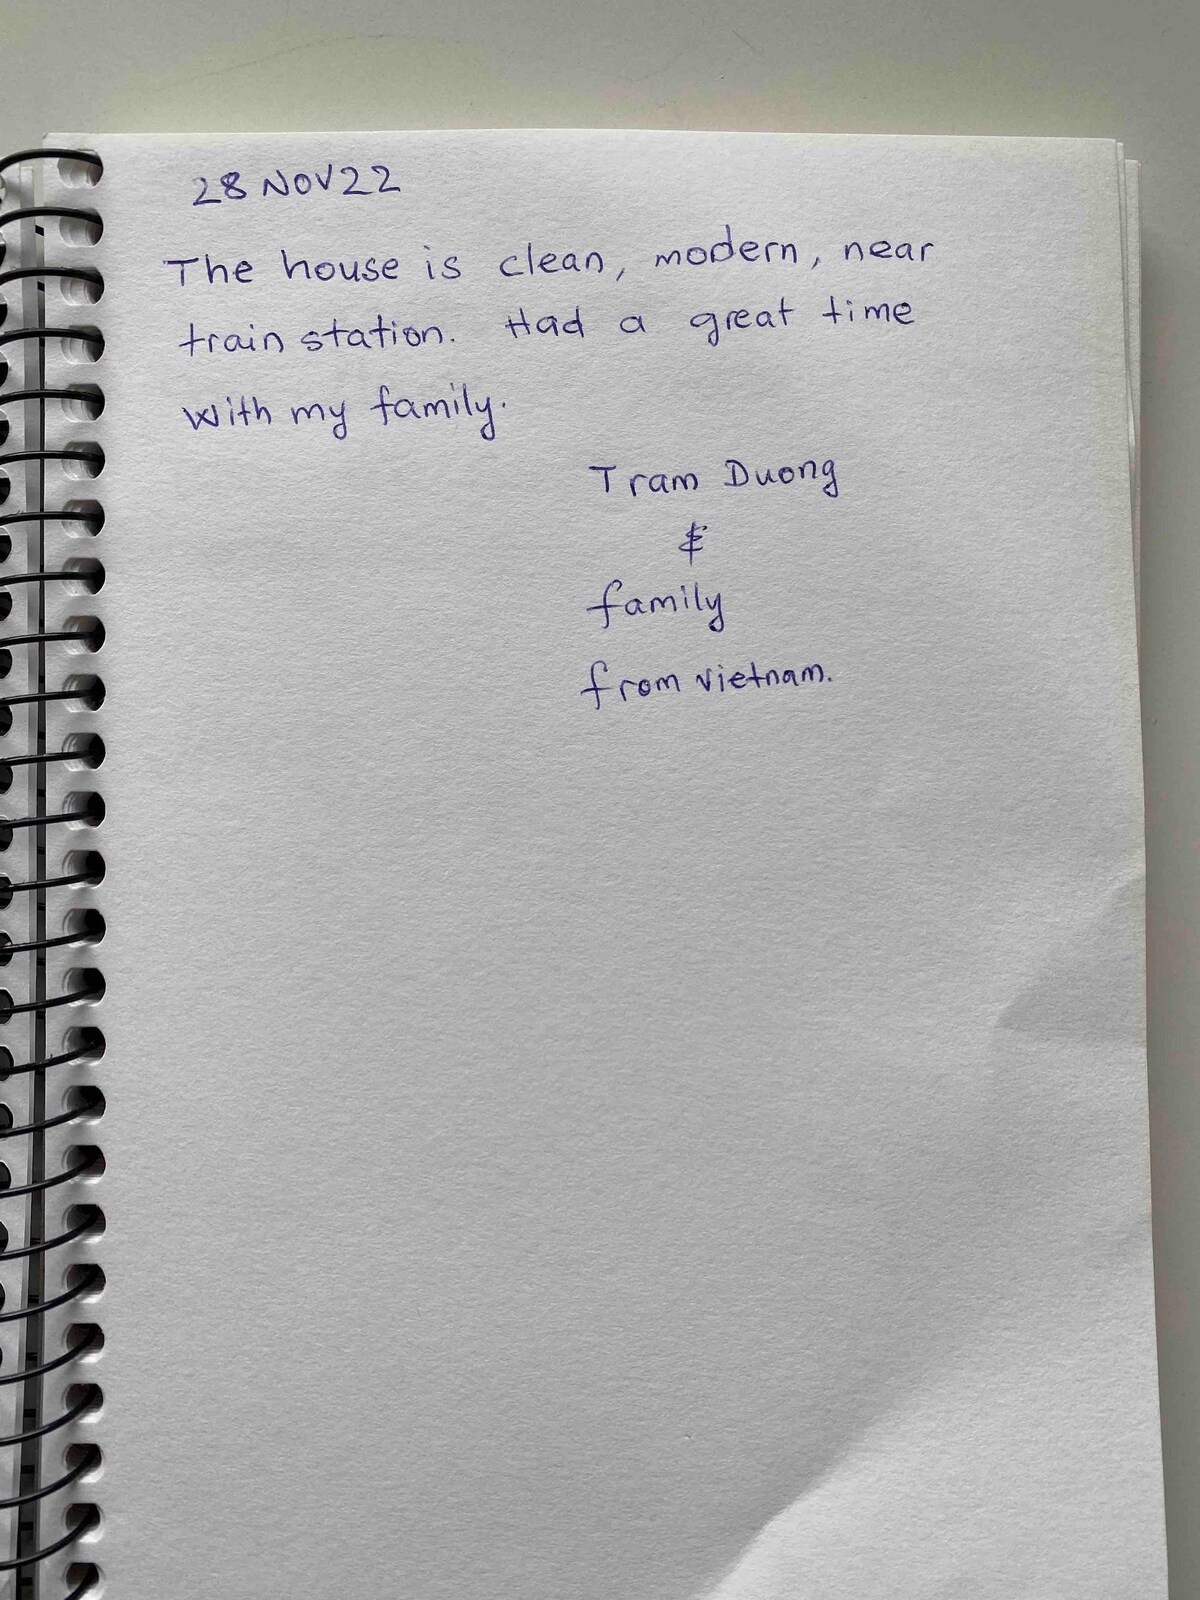 28 NOV 22
The house is clean, modern, near
train station. Had a great time
with my family.
Tram Duong
&
family
from vietnam.